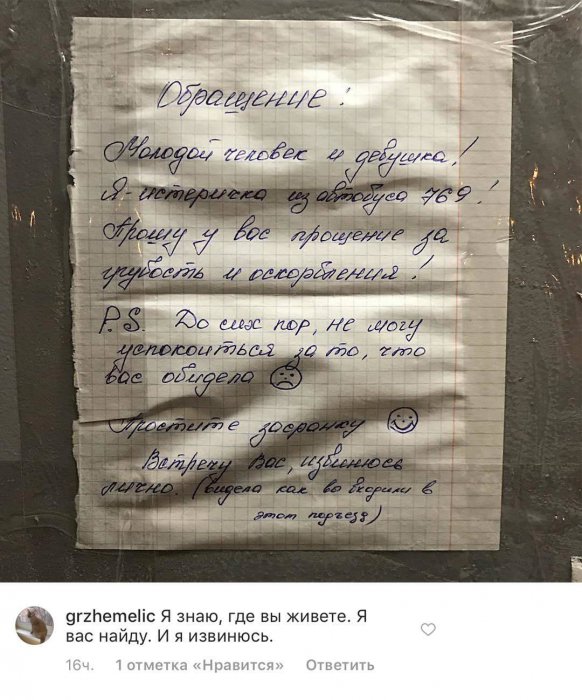 Обращение!
Молодой человек и девушка!
Я-истеричка из автобуса 769!
Прошу у вас прощение за
грубость и оскорбления!
P.S. До сих пор, не могу
успокоиться за то, что
вас обидела
Простите засранку
Встречу Вас, извинюсь
лично. (видела как вы входили в
этот подъезд)
grzhemelic Я знаю, где вы живете. Я
вас найду. И я извинюсь.
16ч. 1 отметка «Нравится» Ответить